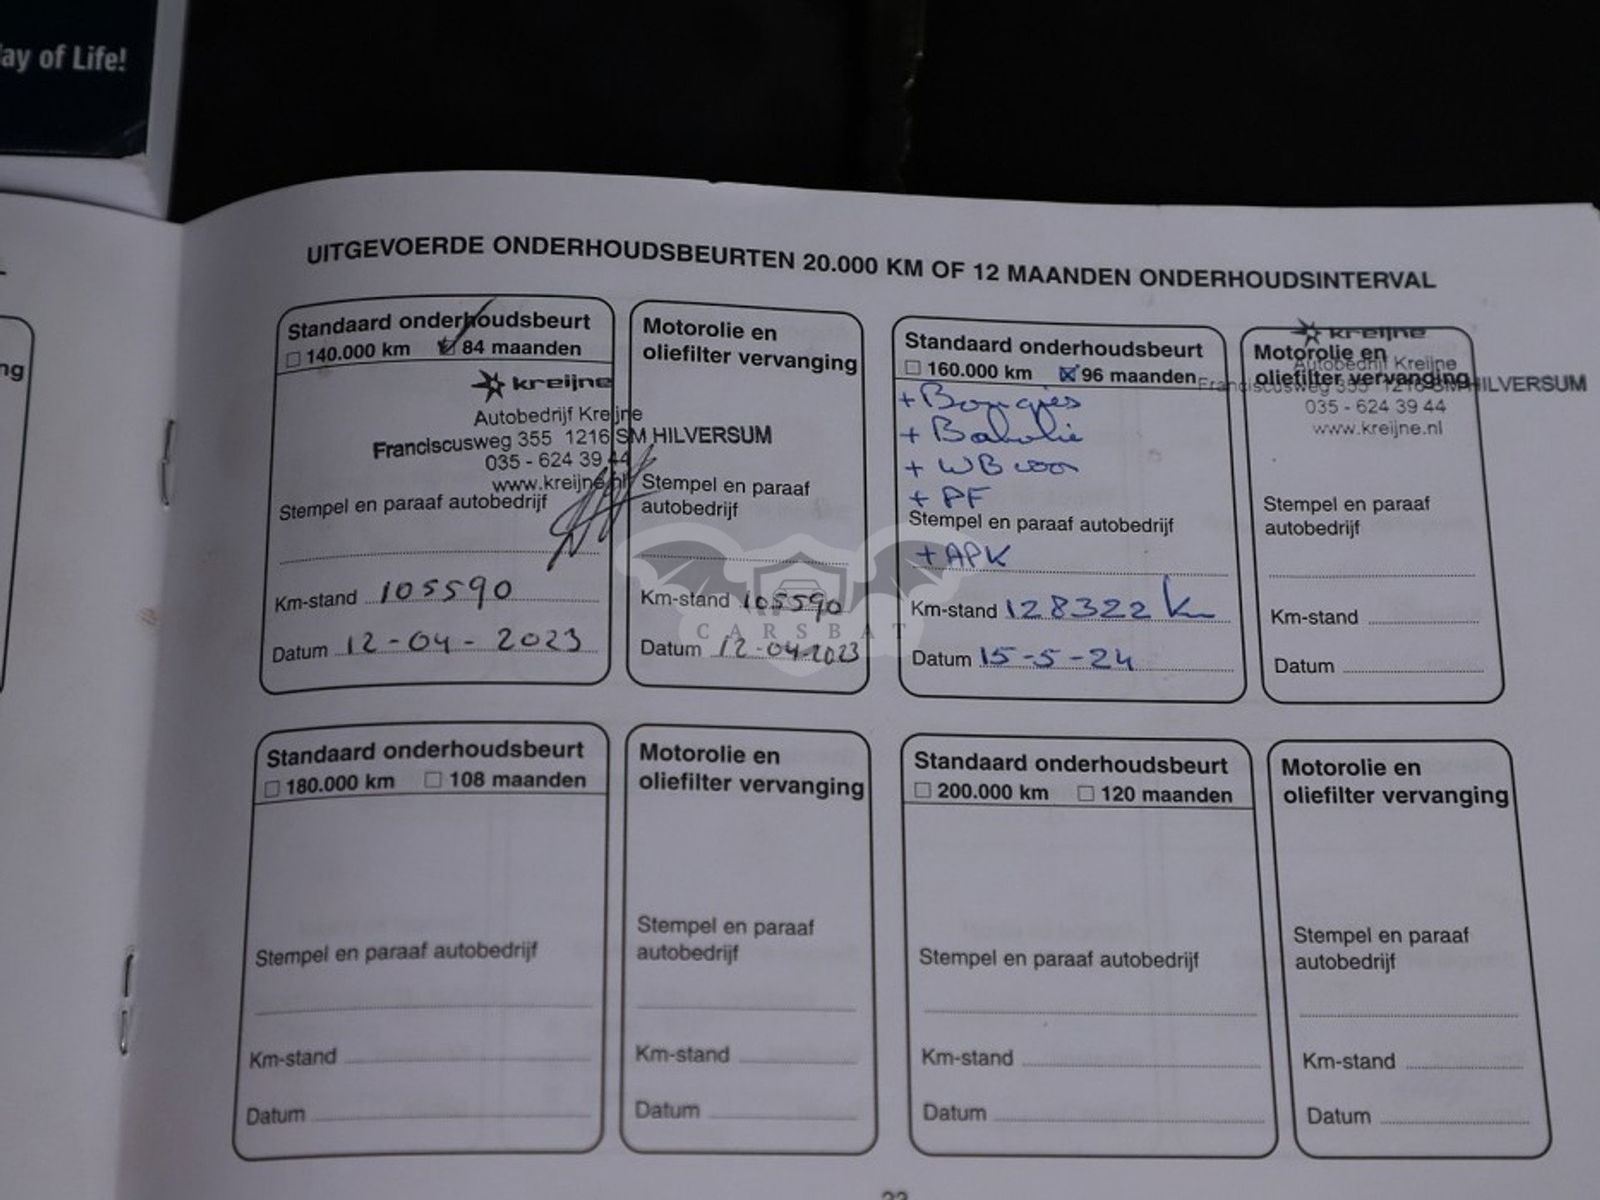 ay of Life!
ng
UITGEVOERDE ONDERHOUDSBEURTEN 20.000 KM OF 12 MAANDEN ONDERHOUDSINTERVAL
Standaard onderhoudsbeurt
140.000 km 84 maanden
kreijne
Autobedrijf Kreijne
Franciscusweg 355 1216 SM HILVERSUM
035 - 624 39 44
www.kreijne.nl
Stempel en paraaf autobedrijf
Km-stand 105590
Datum 12-04-2023
Motorolie en
oliefilter vervanging
Stempel en paraaf
autobedrijf
Km-stand 105590
Datum 12-04-2023
Standaard onderhoudsbeurt
160.000 km 96 maanden
+ Bougies
+ WB voor
+ PF
Stempel en paraaf autobedrijf
+ APK
Km-stand 128322
Datum 15-5-24
kreijne
Motorolie en
Autobedrijf Kreijne
oliefilter vervanging
Franciscusweg 355 1216 SM HILVERSUM
035 - 624 39 44
www.kreijne.nl
Stempel en paraaf
autobedrijf
Km-stand
Datum
CARSBAT
Standaard onderhoudsbeurt
180.000 km 108 maanden
Stempel en paraaf autobedrijf
Km-stand
Datum
Motorolie en
oliefilter vervanging
Stempel en paraaf
autobedrijf
Km-stand
Datum
Standaard onderhoudsbeurt
200.000 km 120 maanden
Stempel en paraaf autobedrijf
Km-stand
Datum
Motorolie en
oliefilter vervanging
Stempel en paraaf
autobedrijf
Km-stand
Datum